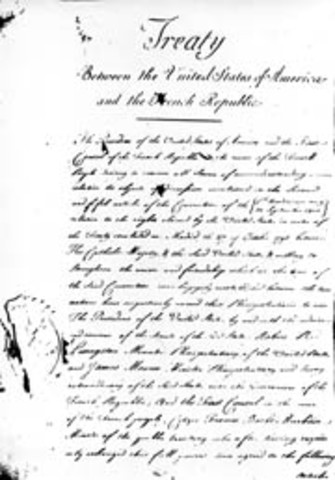 Treaty
Between the United States of America
and the French Republic
The President of the United States of America and the First
Consul of the French Republic in the name of the French
People desiring to remove all Source of misunderstanding
relative to objects of discussion mentioned in the Second
and fifth articles of the Convention of the
relative to the rights claimed by the United States in virtue of
the Treaty concluded at Madrid the 27 of October 1795 between
His Catholic Majesty & the Said United States, & willing to
Strengthen the union and friendship which at the time of
the Said Convention was happily reestablished between the two
nations have respectively named their Plenipotentiaries to wit
The President of the United States, by and with the advice
and consent of the Senate of the Said States, Robert R.
Livingston Minister Plenipotentiary of the United States
and James Monroe Minister Plenipotentiary and Envoy
extraordinary of the Said States near the Government of the
French Republic; And the First Consul in the name
of the French people, Citizen Francis Barbé Marbois
Minister of the public treasury who after having respectively
exchanged their full powers have agreed to the following